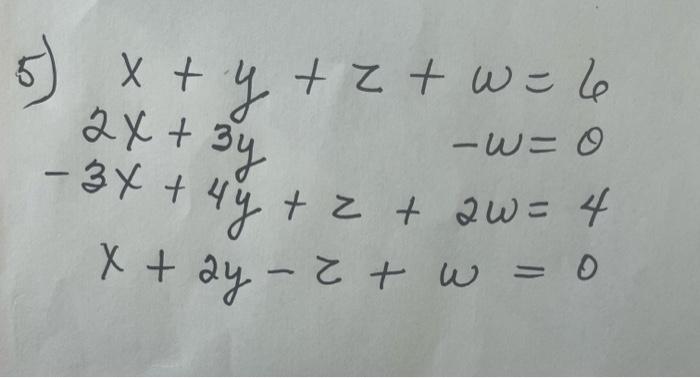 5) x + y + z + w = 6
2x + 3y - w = 0
- 3x + 4y + z + 2w = 4
x + 2y - z + w = 0